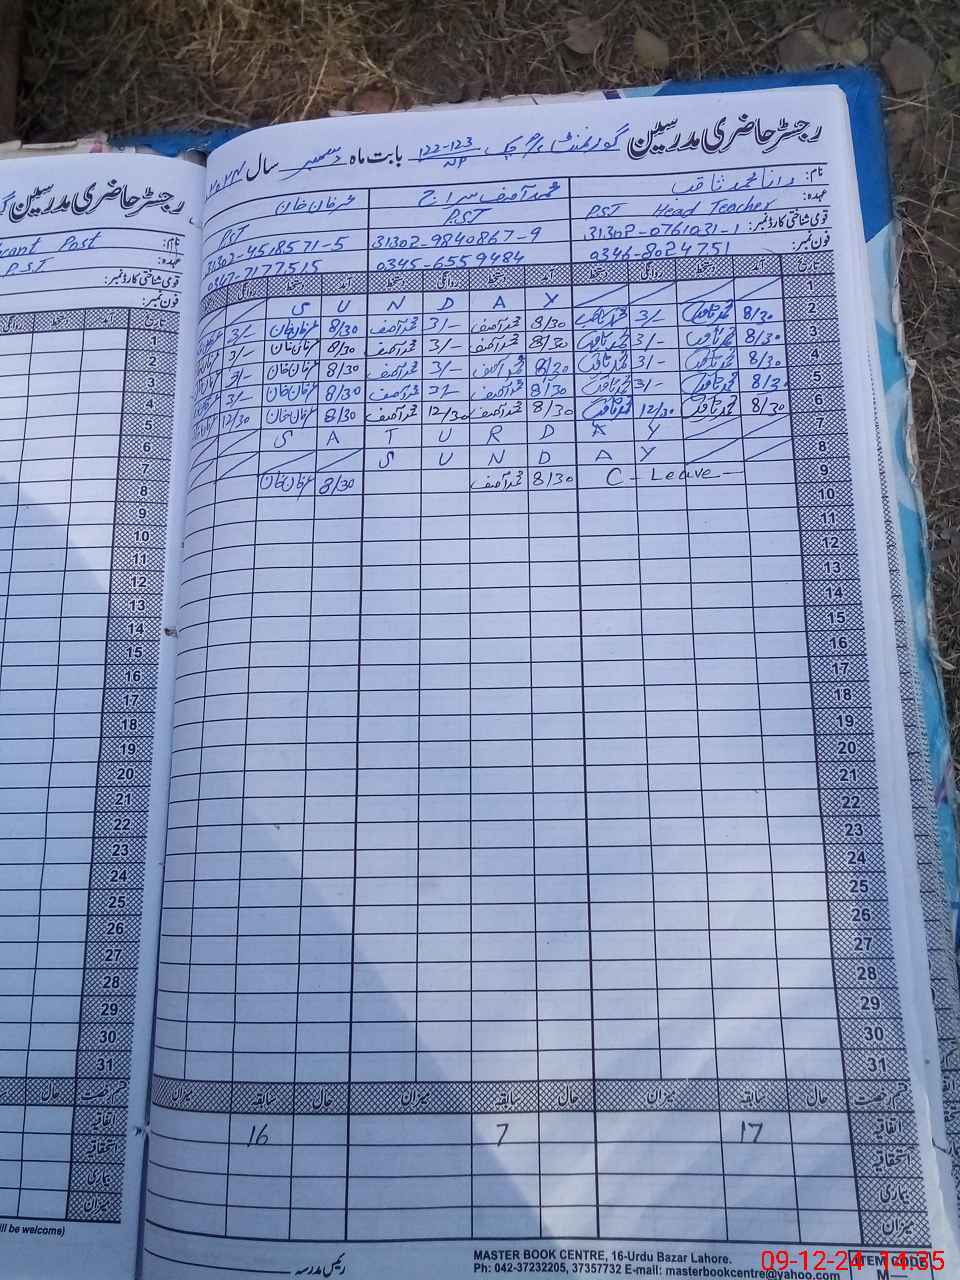 رجسٹر حاضری مدرسین گورنمنٹ پرائمری چک 122-123 NP بابت ماہ دسمبر سال
نام: رانا محمد ثاقب
محمد آصف سراج
عرفان خان
عہدہ: PST Head Teacher
PST
PST
قومی شناختی کارڈ نمبر: 31302-0761031-1
31302-9840867-9
31302-4518571-5
فون نمبر: 0346-8024751
0345-6559484
0347-7177515
تاریخ آمد دستخط روانگی دستخط آمد دستخط روانگی دستخط آمد دستخط روانگی
1 S U N D A Y
2 8/30 محمد ثاقب 3/- محمد ثاقب 8/30 محمد آصف 3/- محمد آصف 8/30 عرفان خان 3/-
3 8/30 محمد ثاقب 3/- محمد ثاقب 8/30 محمد آصف 3/- محمد آصف 8/30 عرفان خان 3/-
4 8/30 محمد ثاقب 3/- محمد ثاقب 8/20 محمد آصف 3/- محمد آصف 8/30 عرفان خان 3/-
5 8/30 محمد ثاقب 3/- محمد ثاقب 8/30 محمد آصف 3/- محمد آصف 8/30 عرفان خان 3/-
6 8/30 محمد ثاقب 12/30 محمد ثاقب 8/30 محمد آصف 12/30 محمد آصف 8/30 عرفان خان 12/30
7 S A T U R D A Y
8 S U N D A Y
9 C - Leave - 8/30 محمد آصف 8/30 عرفان خان
10
11
12
13
14
15
16
17
18
19
20
21
22
23
24
25
26
27
28
29
30
31
قسم رخصت حال سابقہ میزان حال سابقہ میزان حال سابقہ میزان
اتفاقیہ 17 7 16
استحقاقیہ
بیماری
میزان
رئیس مدرسہ
MASTER BOOK CENTRE, 16-Urdu Bazar Lahore.
Ph: 042-37232205, 37357732 E-mail: masterbookcentre@yahoo.com
ITEM CODE
M
09-12-24 14:35
رجسٹر حاضری مدرسین
نام: Post
عہدہ: P.S.T
قومی شناختی کارڈ نمبر:
فون نمبر:
تاریخ آمد دستخط روانگی
1
2
3
4
5
6
7
8
9
10
11
12
13
14
15
16
17
18
19
20
21
22
23
24
25
26
27
28
29
30
31
قسم رخصت حال سابقہ
اتفاقیہ
استحقاقیہ
بیماری
میزان
ill be welcome)